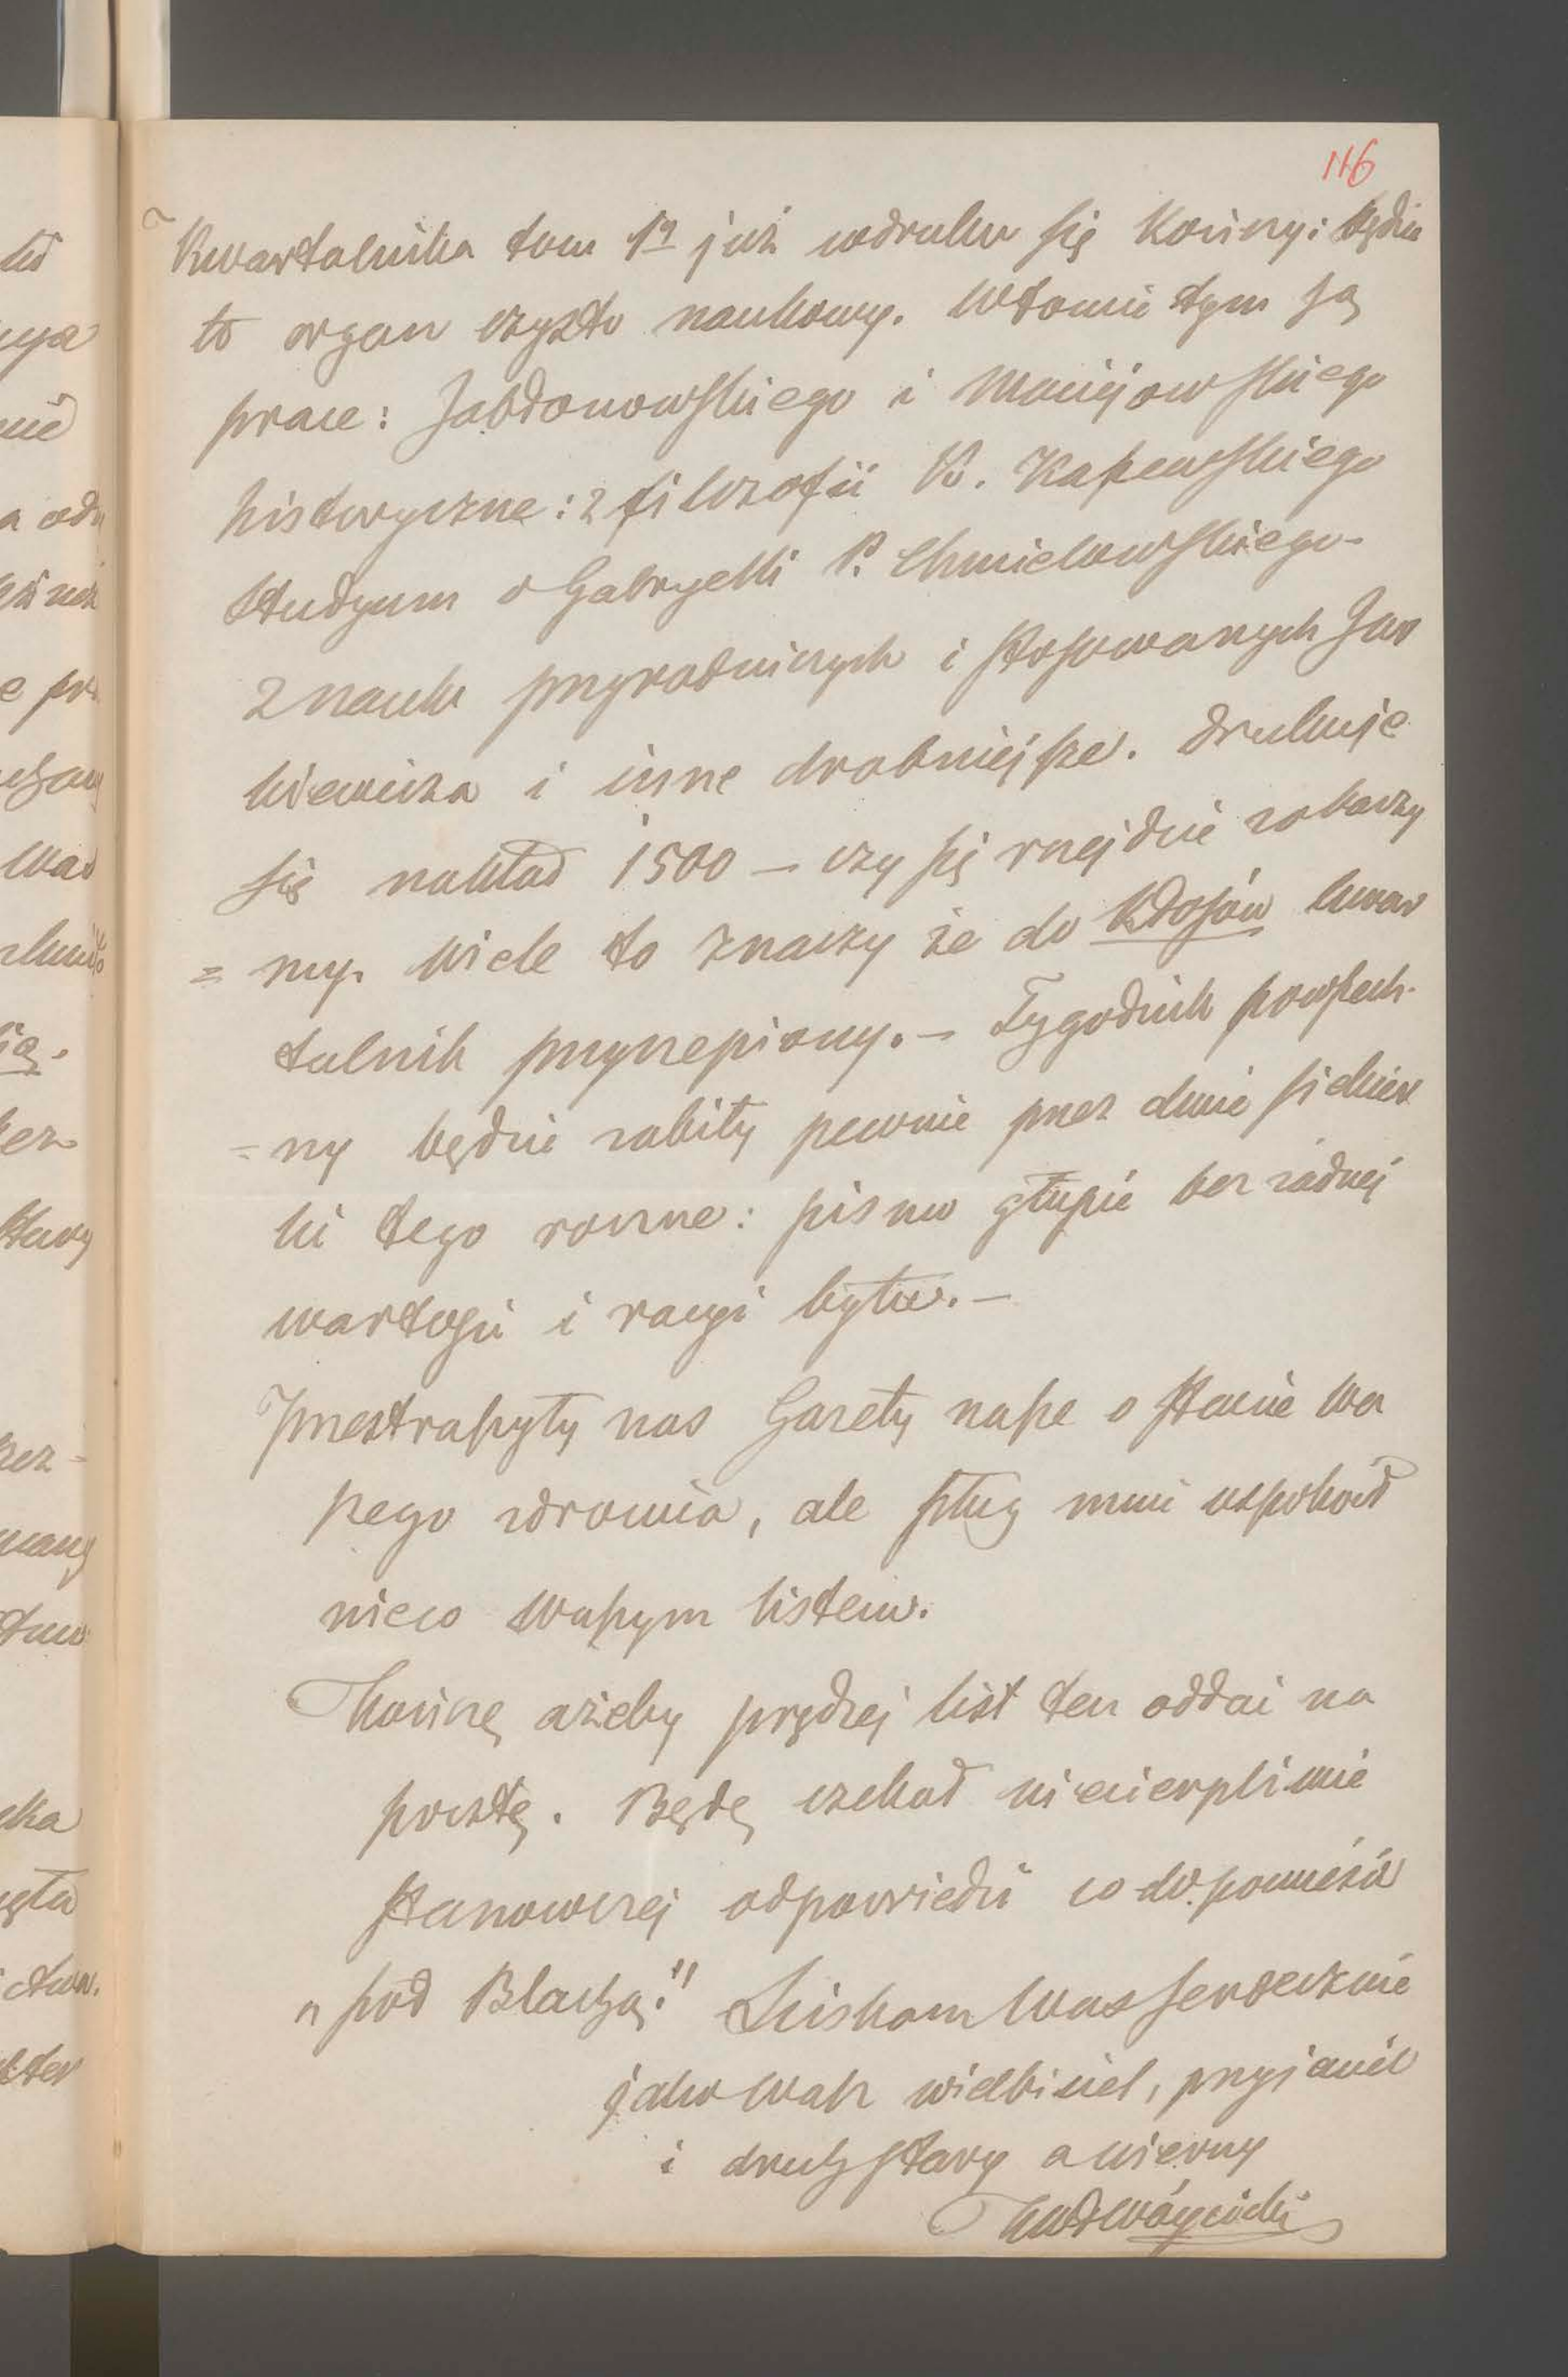 116
Kwartalnika tom 1º już w druku się kończy: będzie
to organ czysto naukowy. W tomie tym są
prace: Jabłonowskiego i Maciejowskiego
historyczne: z filozofii K. Kaszewskiego
Studyum o Gabryelli P. Chmielowskiego.
z nauk przyrodniczych i stosowanych Jan
kiewicza i inne drobniejsze. Drukuje
się nakład 1500 — czy się rozejdzie zobaczy
= my. Wiele to znaczy że do Kłosów kwar
talnik przyczepiony. — Tygodnik powszech-
= ny będzie zabity pewnie przez dwie siekier
ki tego roczne: pismo głupie bez żadnej
wartości i racyi bytu. —
Przestraszyły nas Gazety nasze o stanie Wa
szego zdrowia, ale Pług mnie uspokoił
nieco Waszym listem.
Kończę ażeby prędzej list ten oddać na
pocztę. Będę czekał niecierpliwie
stanowczej odpowiedzi co do powieści
„pod Blachą." Ściskam Was serdecznie
jako Wasz wielbiciel, przyjaciel
i druh stary a wierny
KWł Wóycicki